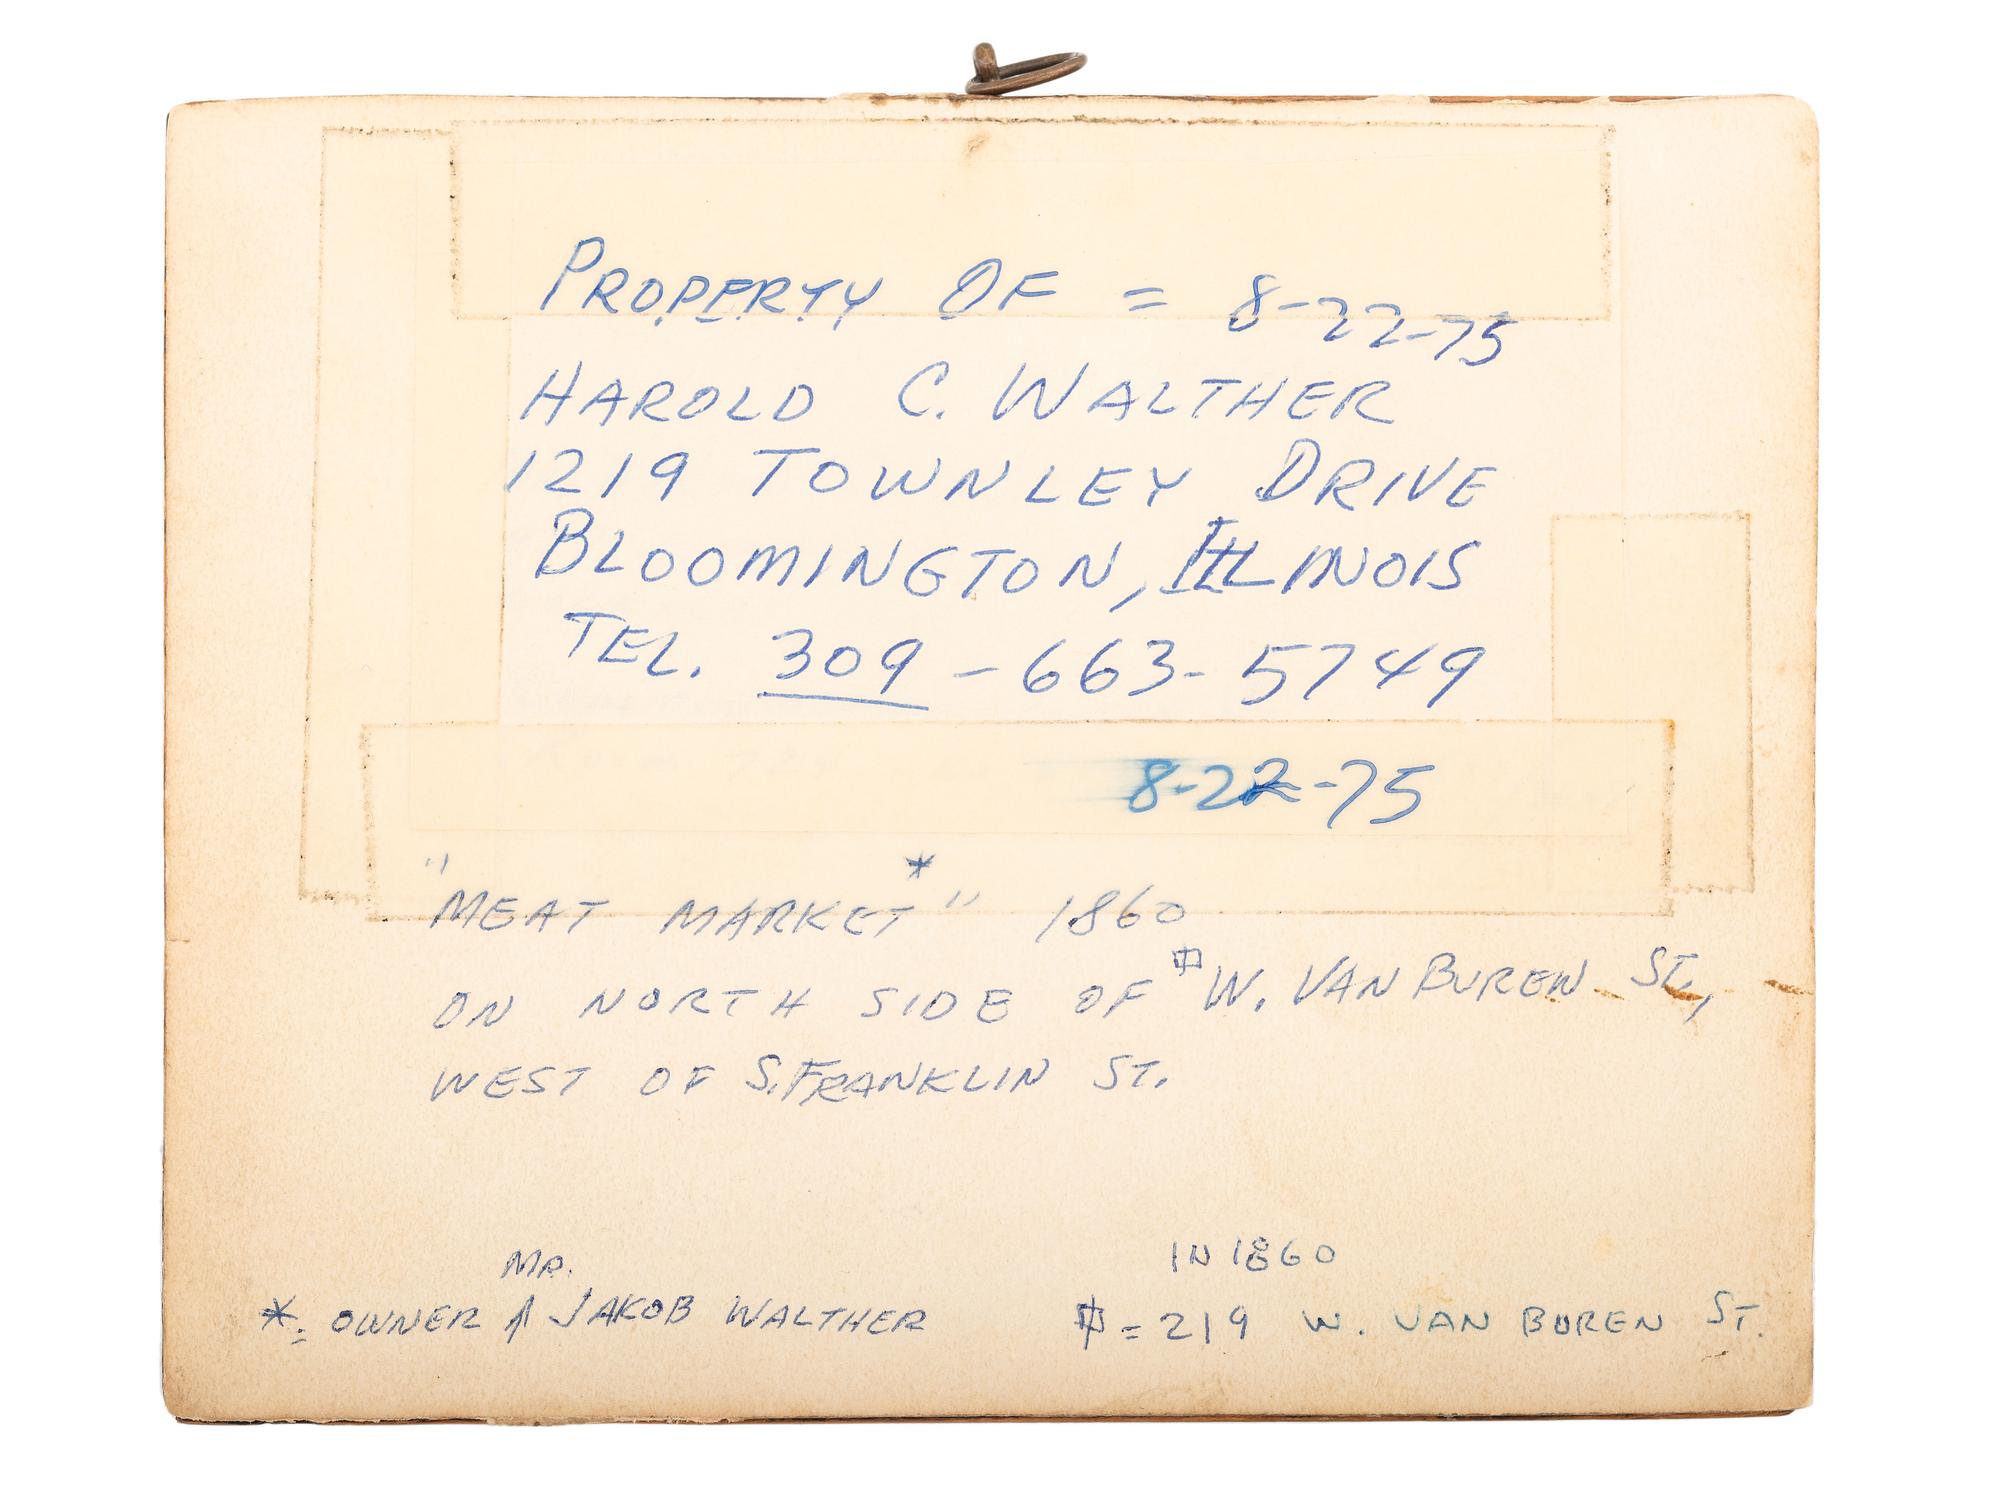 PROPERTY OF = 8-22-75
HAROLD C. WALTHER
1219 TOWNLEY DRIVE
BLOOMINGTON, ILLINOIS
TEL. 309-663-5749
8-22-75
"MEAT MARKET*" 1860
ON NORTH SIDE OF # W. VAN BUREN ST.,
WEST OF S. FRANKLIN ST.
MR.
* = OWNER ^ JAKOB WALTHER
IN 1860
# = 219 W. VAN BUREN ST.